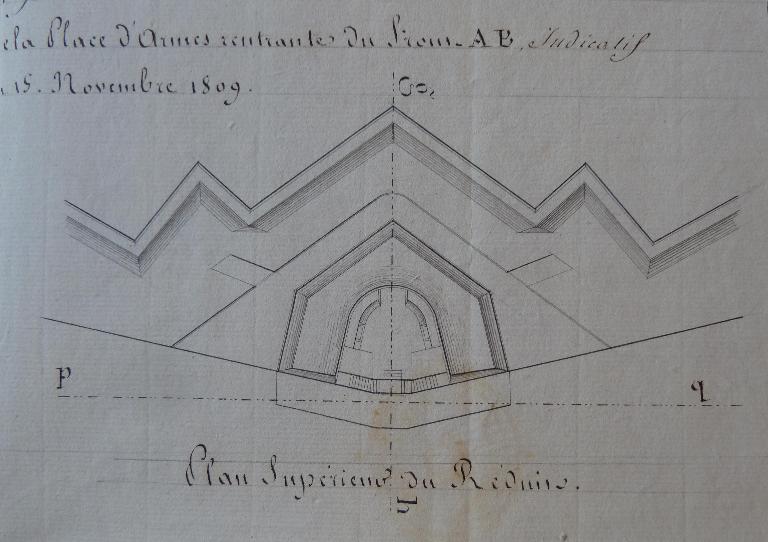 de la Place d'Armes rentrante du Front AB, Indicatif
15. Novembre 1809.
P
q
Plan Supérieur du Réduit.